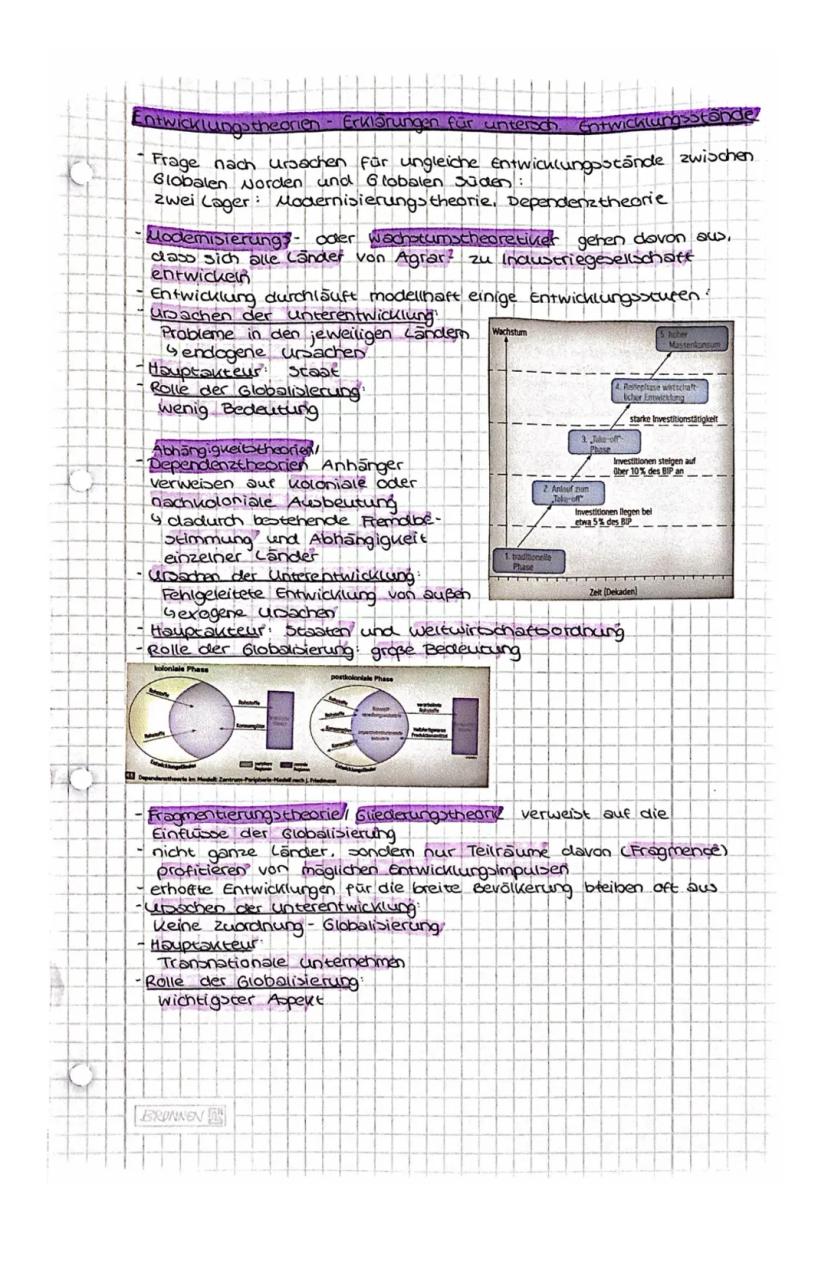 Entwicklungstheorien - Erklärungen für untersch. Entwicklungsstände
- Frage nach Ursachen für ungleiche Entwicklungsstände zwischen
Globalen Norden und Globalen Süden:
zwei Lager: Modernisierungstheorie, Dependenztheorie
- Modernisierungs- oder Wachstumstheoretiker gehen davon aus,
dass sich alle Länder von Agrar- zu Industriegesellschaft
entwickeln
- Entwicklung durchläuft modellhaft einige Entwicklungsstufen:
- Ursachen der Unterentwicklung:
Probleme in den jeweiligen Ländern
↳ endogene Ursachen
- Hauptakteur: Staat
- Rolle der Globalisierung:
wenig Bedeutung
Wachstum
5. hoher
Massenkonsum
4. Reifephase wirtschaft-
licher Entwicklung
starke Investitionstätigkeit
3. „Take-off"-
Phase
Investitionen steigen auf
über 10% des BIP an
2. Anlauf zum
„Take-off"
Investitionen liegen bei
etwa 5% des BIP
1. traditionelle
Phase
Zeit (Dekaden)
Abhängigkeitstheorien/
- Dependenztheorien Anhänger
verweisen auf koloniale oder
nachkoloniale Ausbeutung
↳ dadurch bestehende Fremdbe-
stimmung und Abhängigkeit
einzelner Länder
- Ursachen der Unterentwicklung:
Fehlgeleitete Entwicklung von außen
↳ exogene Ursachen
- Hauptakteur: Staaten und Weltwirtschaftsordnung
- Rolle der Globalisierung: große Bedeutung
koloniale Phase
postkoloniale Phase
Rohstoffe
Rohstoffe
Rohstoffe
Konsumgüter
Entwicklungsländer
Rohstoffe
Rohstoffe
Konsumgüter
Konsumgüter
verarbeitete
Rohstoffe
Halbfertigwaren
Produktionsmittel
Entwicklungsländer
Dependenztheorie im Modell: Zentrum-Peripherie-Modell nach J. Friedmann
- Fragmentierungstheorie/ Gliederungstheorie verweist auf die
Einflüsse der Globalisierung
- nicht ganze Länder, sondern nur Teilräume davon (Fragmente)
profitieren von möglichen Entwicklungsimpulsen
- erhoffte Entwicklungen für die breite Bevölkerung bleiben oft aus
- Ursachen der Unterentwicklung:
Keine Zuordnung - Globalisierung
- Hauptakteur:
Transnationale Unternehmen
- Rolle der Globalisierung:
wichtigster Aspekt
BRUNNEN